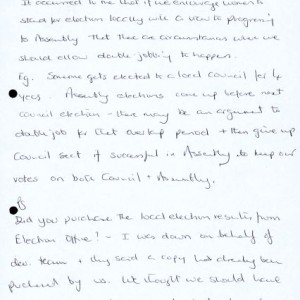 It occurred to me that if we encourage women to
stand for election locally with a view to progressing
to Assembly that there are circumstances when we
should allow double-jobbing to happen.
Eg. Someone gets elected to a local council for 4
years. Assembly elections come up before next
council election - there may be an argument to
double job for that overlap period & then give up
Council seat if successful in Assembly to keep our
votes on both Council & Assembly.
PS
Did you purchase the local election results from
Election Office? - I was down on behalf of
dev. team & they said a copy had already been
purchased by us. We thought we should have